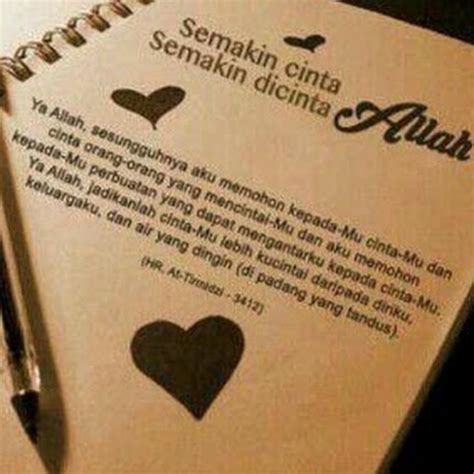 Semakin cinta
Semakin dicinta Allah
Ya Allah, sesungguhnya aku memohon kepada-Mu cinta-Mu dan
cinta orang-orang yang mencintai-Mu dan aku memohon
kepada-Mu perbuatan yang dapat mengantarku kepada cinta-Mu.
Ya Allah, jadikanlah cinta-Mu lebih kucintai daripada diriku,
keluargaku, dan air yang dingin (di padang yang tandus).
(HR. At-Tirmidzi - 3412]